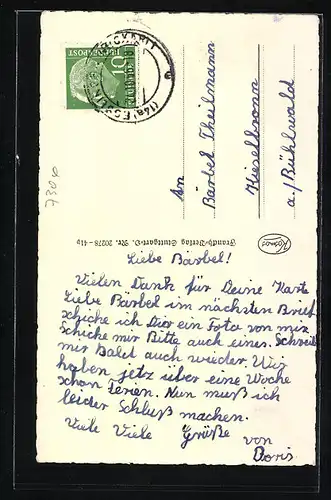 10
DEUTSCHE BUNDESPOST
(14a) ESSLINGEN (NECKAR) 1
7300
An
Bärbel Theilmann
Kieselbronn
a./Bühlwald
Kosmos
Franckh-Verlag Stuttgart-O. Nr. 20278 - 41b
Liebe Bärbel!
Vielen Dank für Deine Karte
Liebe Bärbel im nächsten Brief
schicke ich Dir ein Foto von mir
Schicke mir Bitte auch eines. Schreib
mir Bald auch wieder. Wir
haben jetz über eine Woche
schon Ferien. Nun muß ich
leider Schluß machen.
Viele Viele Grüße von
Doris